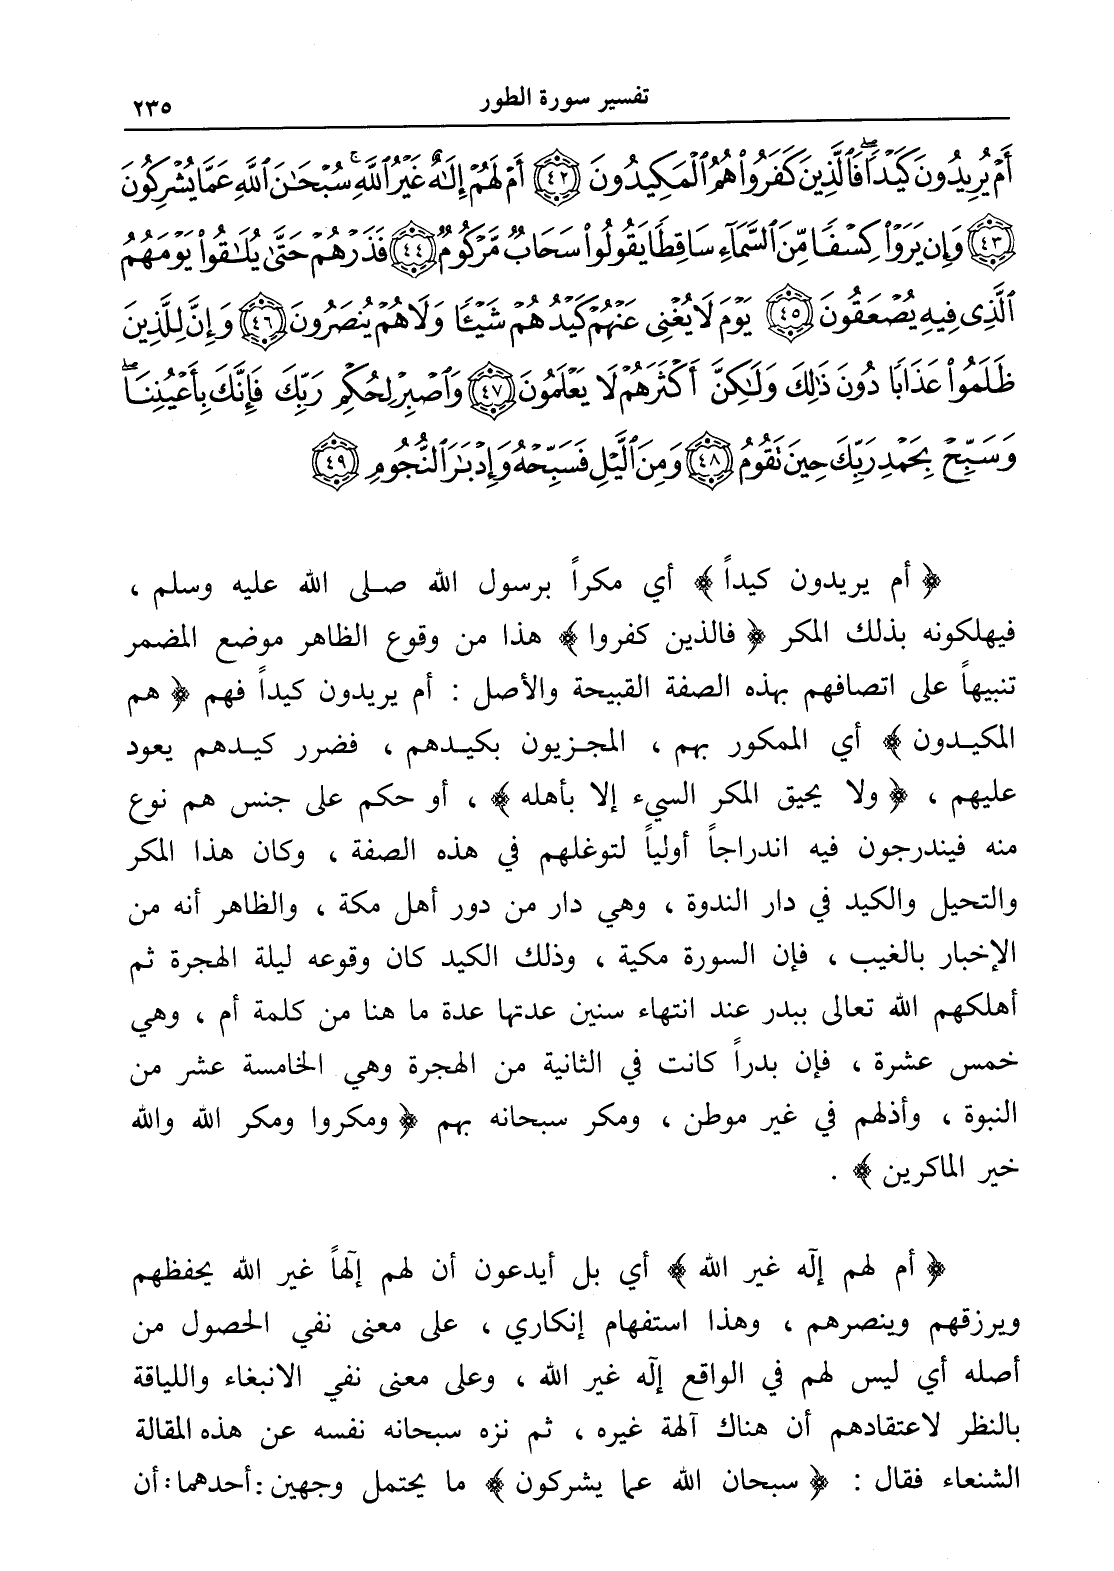 تفسير سورة الطور ٢٣٥
أَمْ يُرِيدُونَ كَيْدًاۖ فَٱلَّذِينَ كَفَرُوا۟ هُمُ ٱلْمَكِيدُونَ ﴿٤٢﴾ أَمْ لَهُمْ إِلَٰهٌ غَيْرُ ٱللَّهِۚ سُبْحَٰنَ ٱللَّهِ عَمَّا يُشْرِكُونَ
﴿٤٣﴾ وَإِن يَرَوْا۟ كِسْفًا مِّنَ ٱلسَّمَآءِ سَاقِطًا يَقُولُوا۟ سَحَابٌ مَّرْكُومٌ ﴿٤٤﴾ فَذَرْهُمْ حَتَّىٰ يُلَٰقُوا۟ يَوْمَهُمُ
ٱلَّذِى فِيهِ يُصْعَقُونَ ﴿٤٥﴾ يَوْمَ لَا يُغْنِى عَنْهُمْ كَيْدُهُمْ شَيْـًٔا وَلَا هُمْ يُنصَرُونَ ﴿٤٦﴾ وَإِنَّ لِلَّذِينَ
ظَلَمُوا۟ عَذَابًا دُونَ ذَٰلِكَ وَلَٰكِنَّ أَكْثَرَهُمْ لَا يَعْلَمُونَ ﴿٤٧﴾ وَٱصْبِرْ لِحُكْمِ رَبِّكَ فَإِنَّكَ بِأَعْيُنِنَاۖ
وَسَبِّحْ بِحَمْدِ رَبِّكَ حِينَ تَقُومُ ﴿٤٨﴾ وَمِنَ ٱلَّيْلِ فَسَبِّحْهُ وَإِدْبَٰرَ ٱلنُّجُومِ ﴿٤٩﴾
﴿ أم يريدون كيداً ﴾ أي مكراً برسول الله صلى الله عليه وسلم ،
فيهلكونه بذلك المكر ﴿ فالذين كفروا ﴾ هذا من وقوع الظاهر موضع المضمر
تنبيهاً على اتصافهم بهذه الصفة القبيحة والأصل : أم يريدون كيداً فهم ﴿ هم
المكيدون ﴾ أي الممكور بهم ، المجزيون بكيدهم ، فضرر كيدهم يعود
عليهم ، ﴿ ولا يحيق المكر السيء إلا بأهله ﴾ ، أو حكم على جنس هم نوع
منه فيندرجون فيه اندراجاً أولياً لتوغلهم في هذه الصفة ، وكان هذا المكر
والتحيل والكيد في دار الندوة ، وهي دار من دور أهل مكة ، والظاهر أنه من
الإخبار بالغيب ، فإن السورة مكية ، وذلك الكيد كان وقوعه ليلة الهجرة ثم
أهلكهم الله تعالى ببدر عند انتهاء سنين عدتها عدة ما هنا من كلمة أم ، وهي
خمس عشرة ، فإن بدراً كانت في الثانية من الهجرة وهي الخامسة عشر من
النبوة ، وأذلهم في غير موطن ، ومكر سبحانه بهم ﴿ ومكروا ومكر الله والله
خير الماكرين ﴾ .
﴿ أم لهم إلٓه غير الله ﴾ أي بل أيدعون أن لهم إلٓهاً غير الله يحفظهم
ويرزقهم وينصرهم ، وهذا استفهام إنكاري ، على معنى نفي الحصول من
أصله أي ليس لهم في الواقع إلٓه غير الله ، وعلى معنى نفي الانبغاء واللياقة
بالنظر لاعتقادهم أن هناك آلهة غيره ، ثم نزه سبحانه نفسه عن هذه المقالة
الشنعاء فقال : ﴿ سبحان الله عما يشركون ﴾ ما يحتمل وجهين : أحدهما : أن